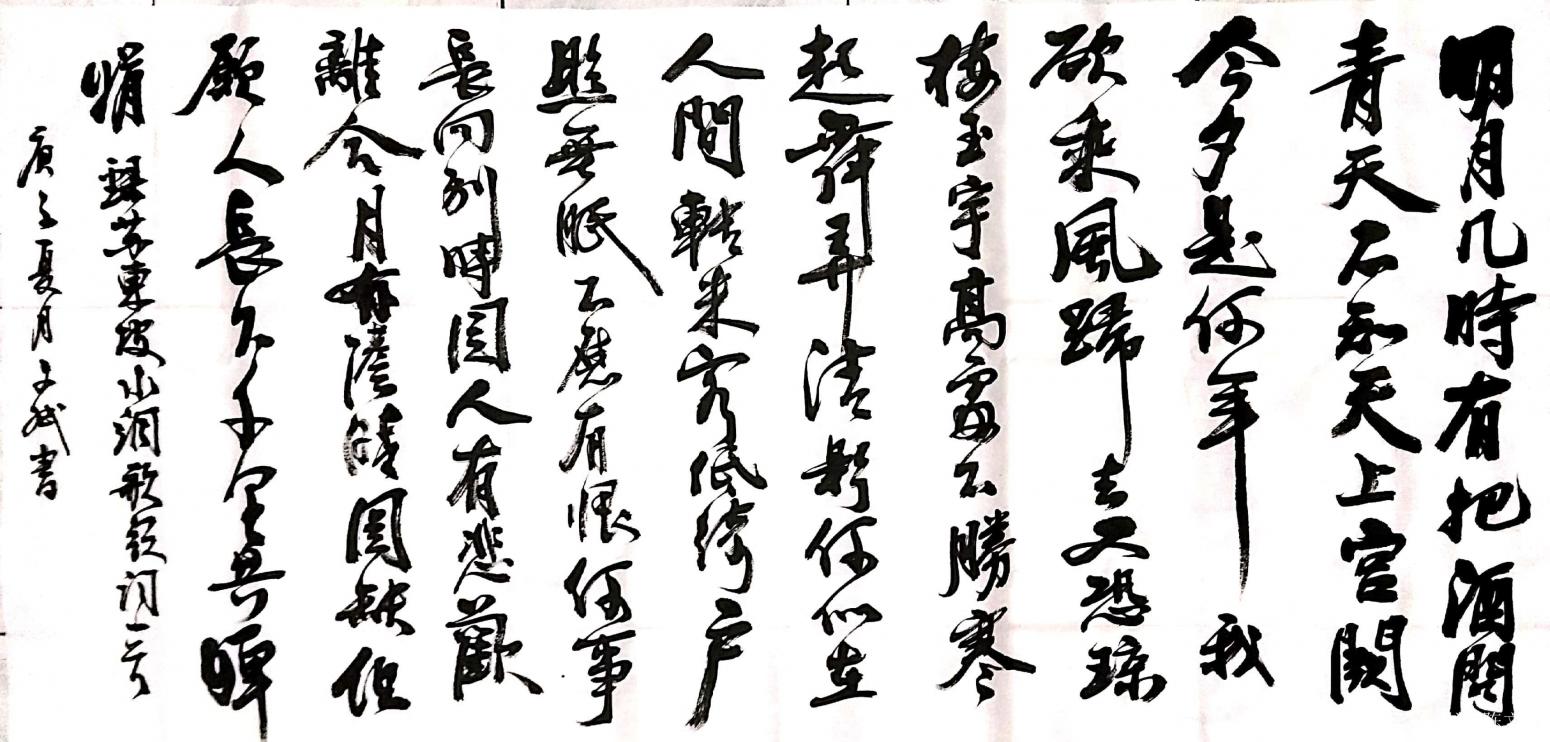 明月几時有把酒問
青天不知天上宮闕
今夕是何年我
欲乘風歸去又恐瓊
楼玉宇高處不勝寒
起舞弄清影何似在
人間轉朱閣低綺户
照無眠不應有恨何事
長向别時圆人有悲歡
離合月有陰晴圆缺但
願人長久千里共嬋
娟 錄苏東坡水調歌頭詞一首
庚子夏月文斌書